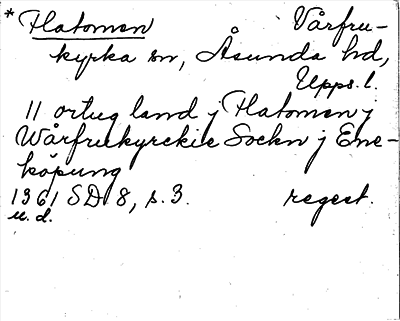 * Flatomen Vårfru-
kyrka sn, Åsunda hd,
Upps. l.
11 ortug land j Flatomen j
Wårfrukyrckie Sockn j Ene-
köpung
1361 SD 8, s. 3. regest.
u. d.